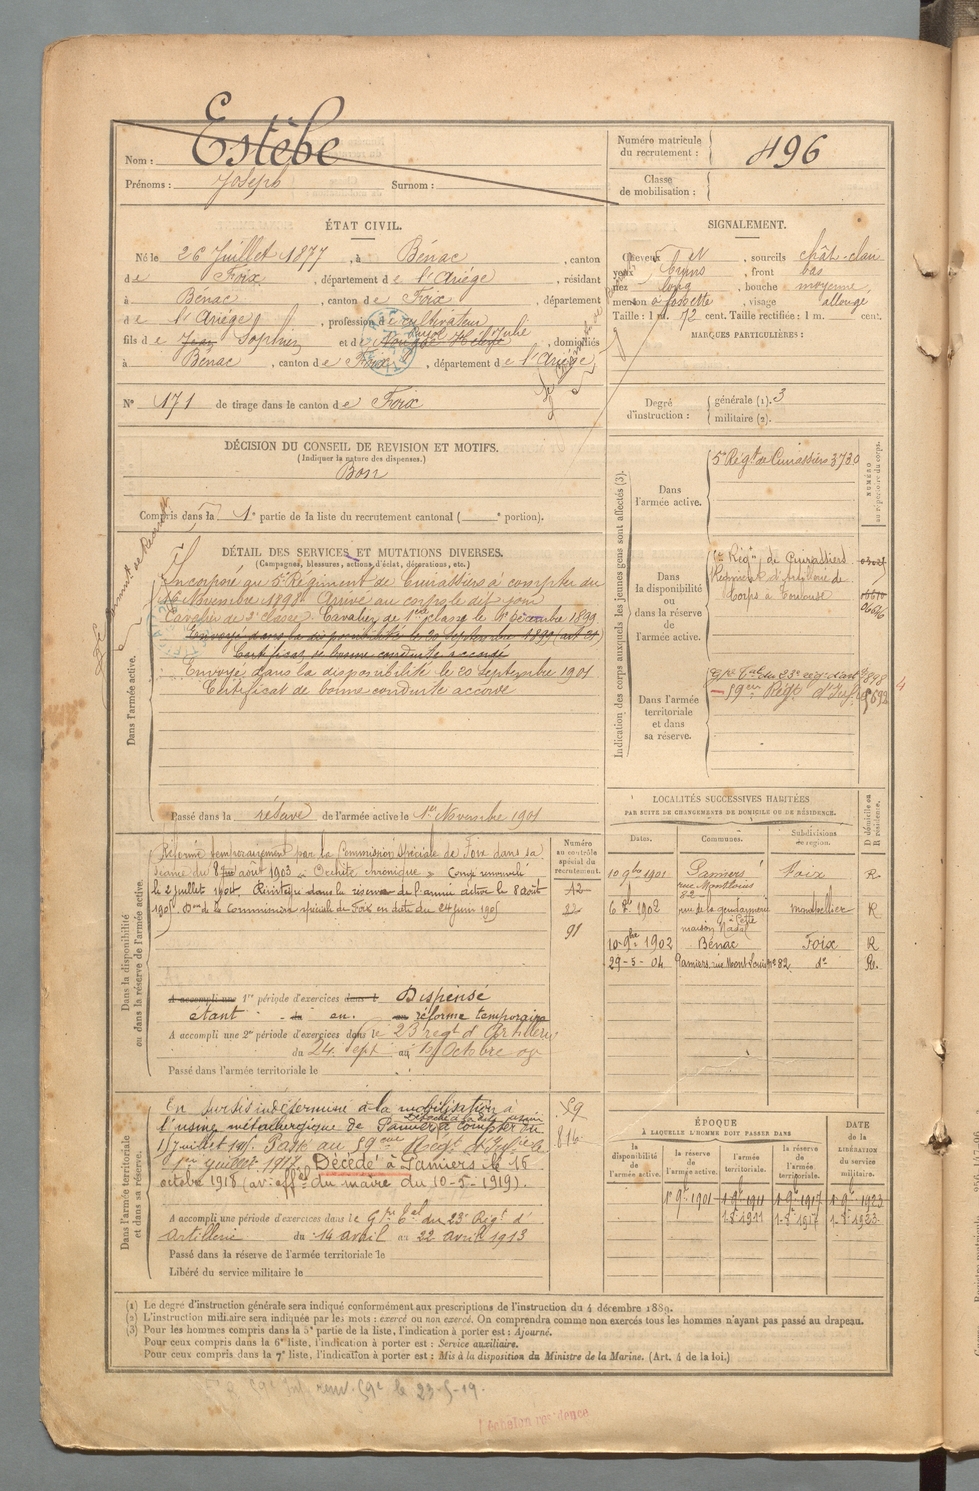 Nom : Estèbe
Prénoms : Joseph Surnom :
Numéro matricule du recrutement : 496
Classe de mobilisation :
ÉTAT CIVIL.
Né le 26 Juillet 1877, à Bénac, canton
de Foix, département de l'Ariége, résidant
à Bénac, canton de Foix, département
de l'Ariége, profession de cultivateur
fils de Jean Sophie et de Julie, domiciliés
à Bénac, canton de Foix, département de l'Ariége
N° 171 de tirage dans le canton de Foix
SIGNALEMENT.
Cheveux et, sourcils chât-clair
yeux bruns, front bas
nez long, bouche moyenne,
menton à fossette, visage allongé
Taille : 1 m. 72 cent. Taille rectifiée : 1 m. cent.
MARQUES PARTICULIÈRES :
Degré d'instruction : générale (1). 3
militaire (2).
DÉCISION DU CONSEIL DE REVISION ET MOTIFS.
(Indiquer la nature des dispenses.)
Bon
Compris dans la 1e partie de la liste du recrutement cantonal ( e portion).
DÉTAIL DES SERVICES ET MUTATIONS DIVERSES.
(Campagnes, blessures, actions d'éclat, décorations, etc.)
Dans l'armée active.
Incorporé au 5e Régiment de Cuirassiers à compter du
16 Novembre 1898. Arrivé au corps le dit jour
Cavalier de 2e classe. Cavalier de 1ère classe le 6 Décembre 1899
Envoyé dans la disponibilité le 20 Septembre
Certificat de bonne conduite accordé
Envoyé dans la disponibilité le 20 septembre 1901
Certificat de bonne conduite accordé
Passé dans la réserve de l'armée active le 1er Novembre 1901
Indication des corps auxquels les jeunes gens sont affectés (3).
NUMÉRO au répertoire du corps.
Dans l'armée active.
5e Régt de Cuirassiers 3730
Dans la disponibilité ou dans la réserve de l'armée active.
Régt de Cuirassiers
Régiment d'artillerie de
Corps à Toulouse
Dans l'armée territoriale et dans sa réserve.
Gpe Tal du 23e régt d'art 1898
59ème Régt d'Inf
LOCALITÉS SUCCESSIVES HABITÉES
PAR SUITE DE CHANGEMENTS DE DOMICILE OU DE RÉSIDENCE.
Dates. Communes. Subdivisions de région. D domicile ou R résidence.
10 9bre 1901 Pamiers rue Montlouis 82 Foix R.
1902 rue de la gendarmerie à Cette maison Nadal Montpellier R
10-9bre 1902 Bénac Foix R
29-5-04 Pamiers, rue Mont Louis n° 82. do R.
Dans la disponibilité ou dans la réserve de l'armée active.
Numéro au contrôle spécial du recrutement.
Réformé temporairement par la Commission spéciale de Foix dans sa
séance du 8 août 1903 « Orchite chronique » Congé renouvelé
le 2 juillet 1904. Réintégré dans la réserve de l'armée active le 8 août
1905. Don de la Commission spéciale de Foix en date du 24 juin 1905
12
22
91
A accompli une 1re période d'exercices dans l Dispensé
étant en réforme temporaire
A accompli une 2e période d'exercices dans le 23 régt d'Artillerie
du 24 Sept au Octobre 07
Passé dans l'armée territoriale le
Dans l'armée territoriale et dans sa réserve.
En sursis indéterminé à la mobilisation à
l'usine métallurgique de Pamiers à compter du
Juillet 1915. Passé au 59ème Régt d'Infie le
1er Juillet 1917. Décédé à Pamiers le 16
octobre 1918 (avis off du maire du 10-5-1919).
59
816
A accompli une période d'exercices dans le Gpe Tal du 23e Régt d'
Artillerie du 14 avril au 22 avril 1913
Passé dans la réserve de l'armée territoriale le
Libéré du service militaire le
ÉPOQUE
À LAQUELLE L'HOMME DOIT PASSER DANS
la disponibilité de l'armée active. la réserve de l'armée active. l'armée territoriale. la réserve de l'armée territoriale.
DATE de la LIBÉRATION du service militaire.
1er 9bre 1901 1-9bre 1911 1-9bre 1917 1-9bre 1923
1911 1917 1923
(1) Le degré d'instruction générale sera indiqué conformément aux prescriptions de l'instruction du 4 décembre 1889.
(2) L'instruction militaire sera indiquée par les mots : exercé ou non exercé. On comprendra comme non exercés tous les hommes n'ayant pas passé au drapeau.
(3) Pour les hommes compris dans la 5e partie de la liste, l'indication à porter est : Ajourné.
Pour ceux compris dans la 6e liste, l'indication à porter est : Service auxiliaire.
Pour ceux compris dans la 7e liste, l'indication à porter est : Mis à la disposition du Ministre de la Marine. (Art. 4 de la loi.)
59e Inf. renv. 59e le 23-5-19.
Echelon résidence